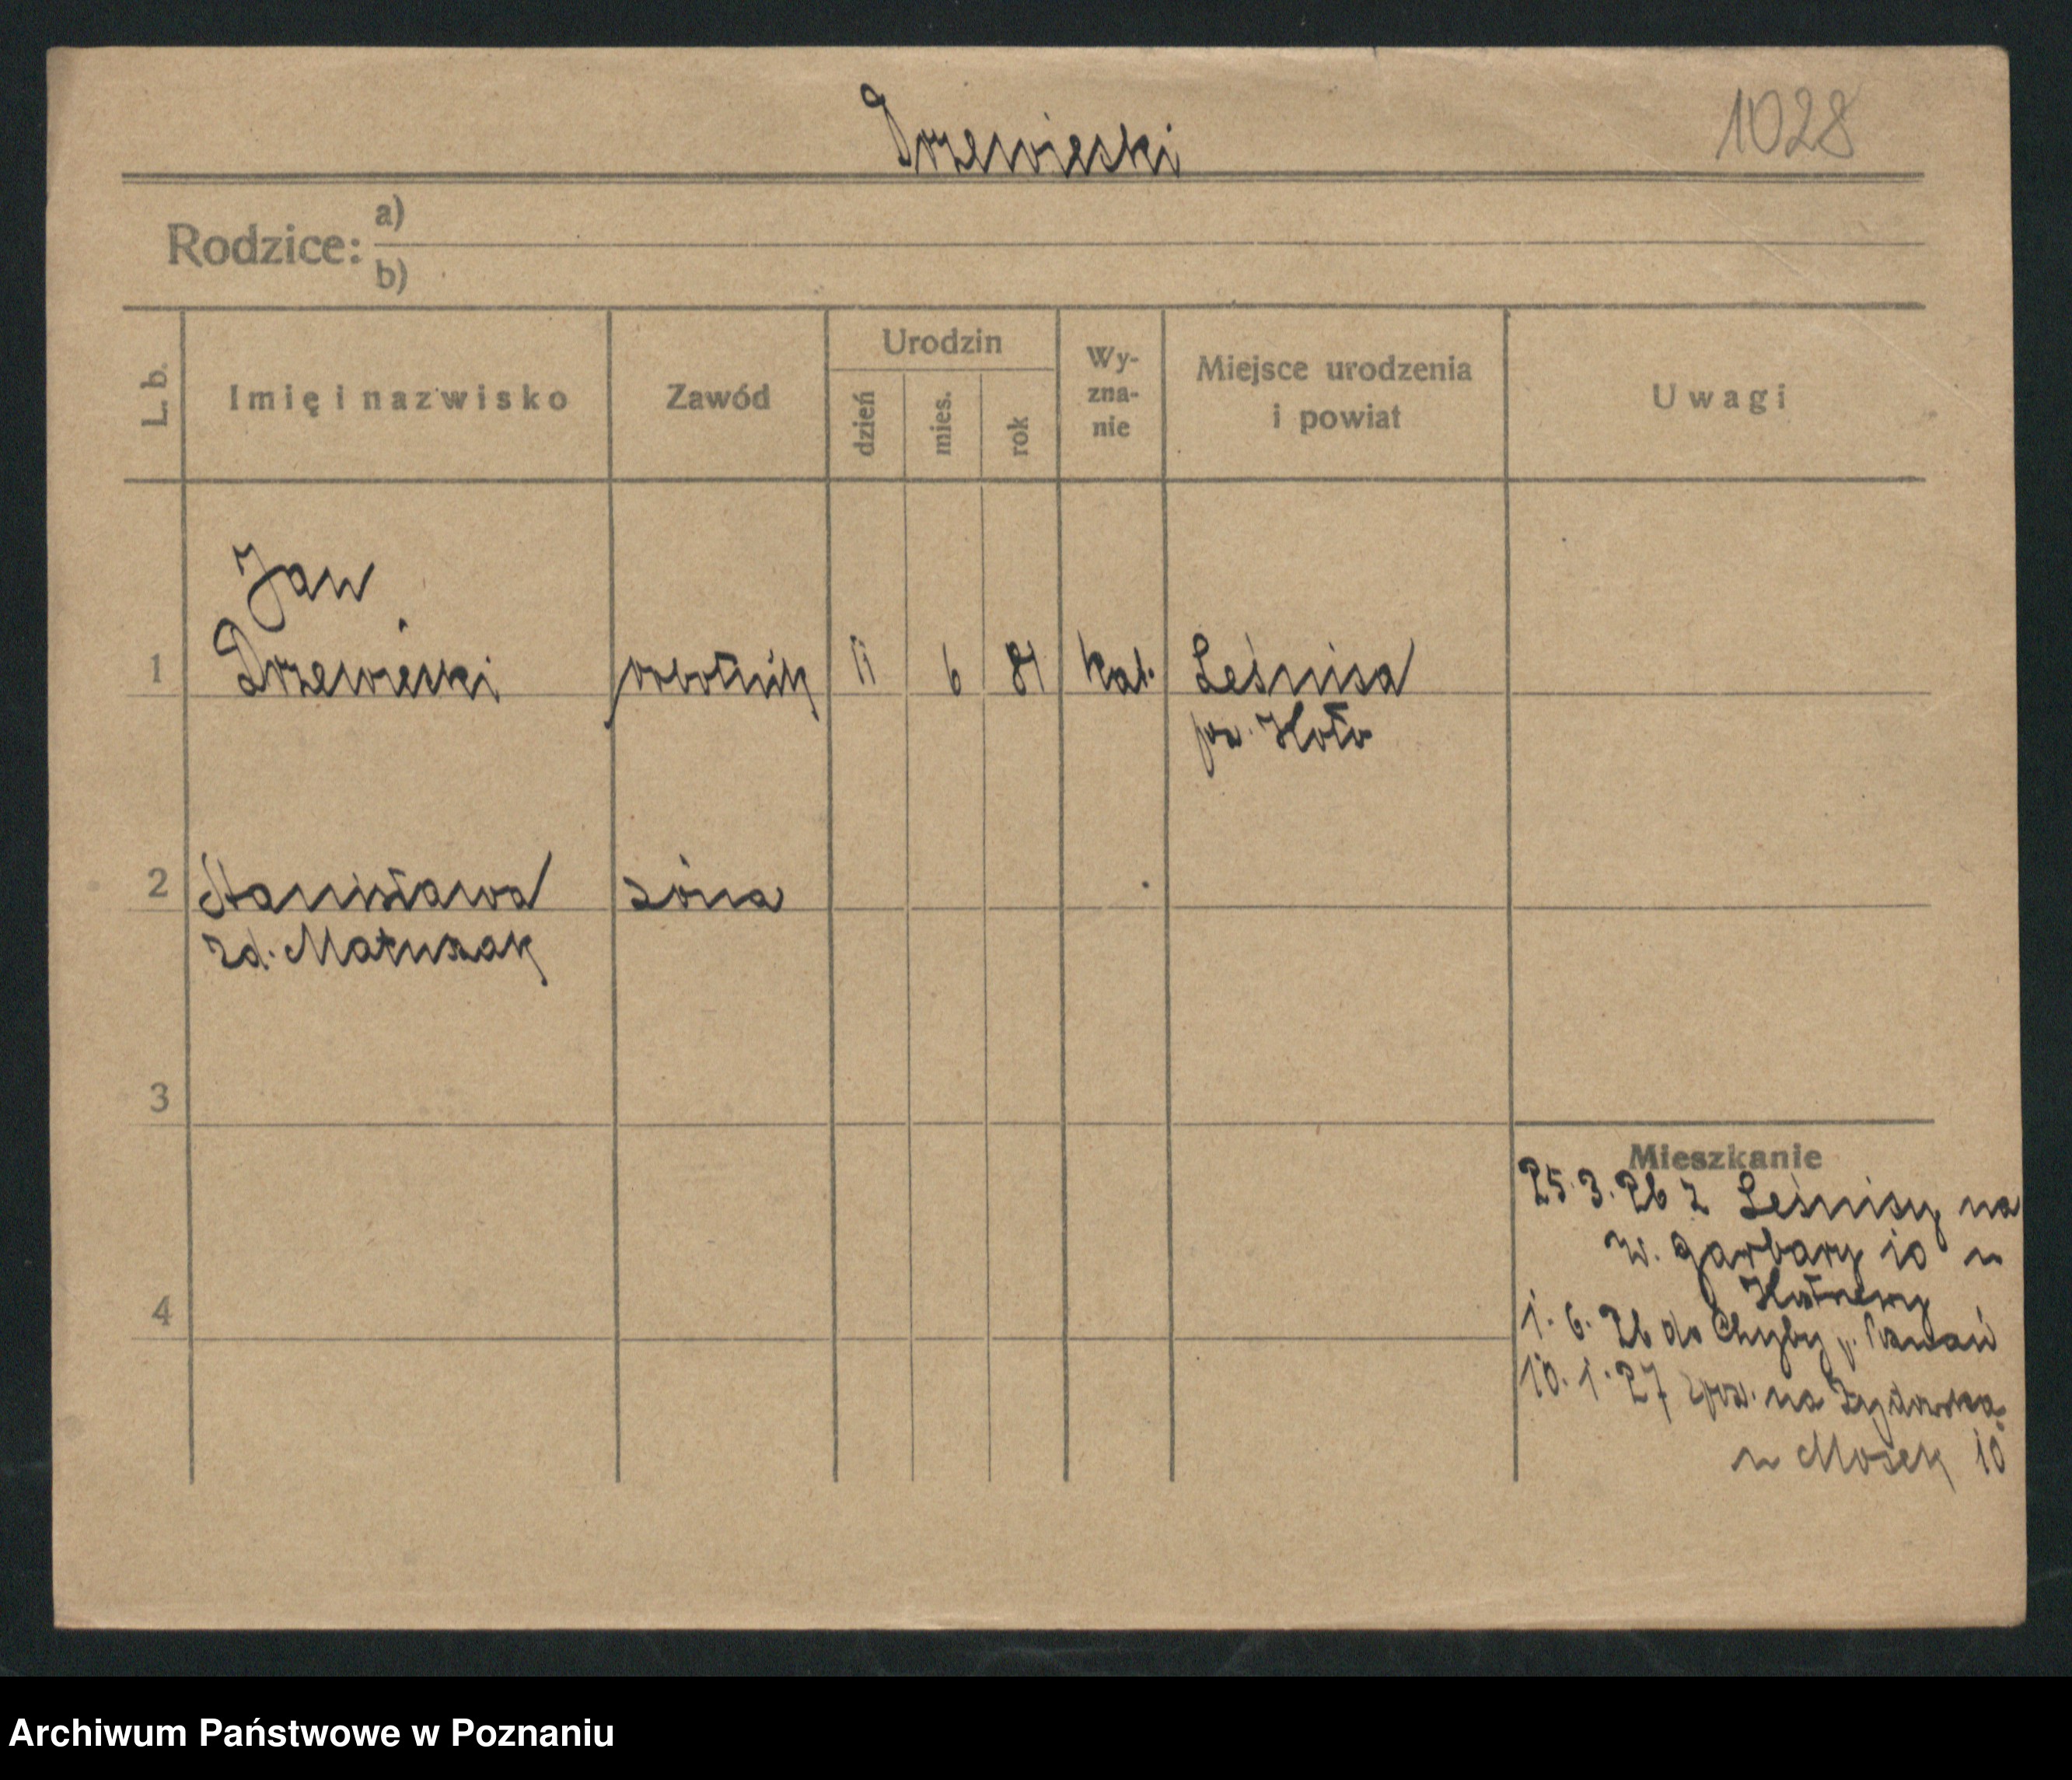 Drzewiecki
1028
Rodzice: a)
b)
L. b. Imię i nazwisko Zawód Urodzin dzień mies. rok Wy-zna-nie Miejsce urodzenia i powiat Uwagi
Jan
1 Drzewiecki robotnik 11 6 81 kat. Leśnica
pw. Koło
2 Stanisława żona
zd. Matuszak
3
Mieszkanie
25.3.26 z Leśnicy na
W. Garbary 10 u
4
1.6.26 do Chyby p. Poznań
10.1.27 na Żydowską
u Mosek 10
Archiwum Państwowe w Poznaniu